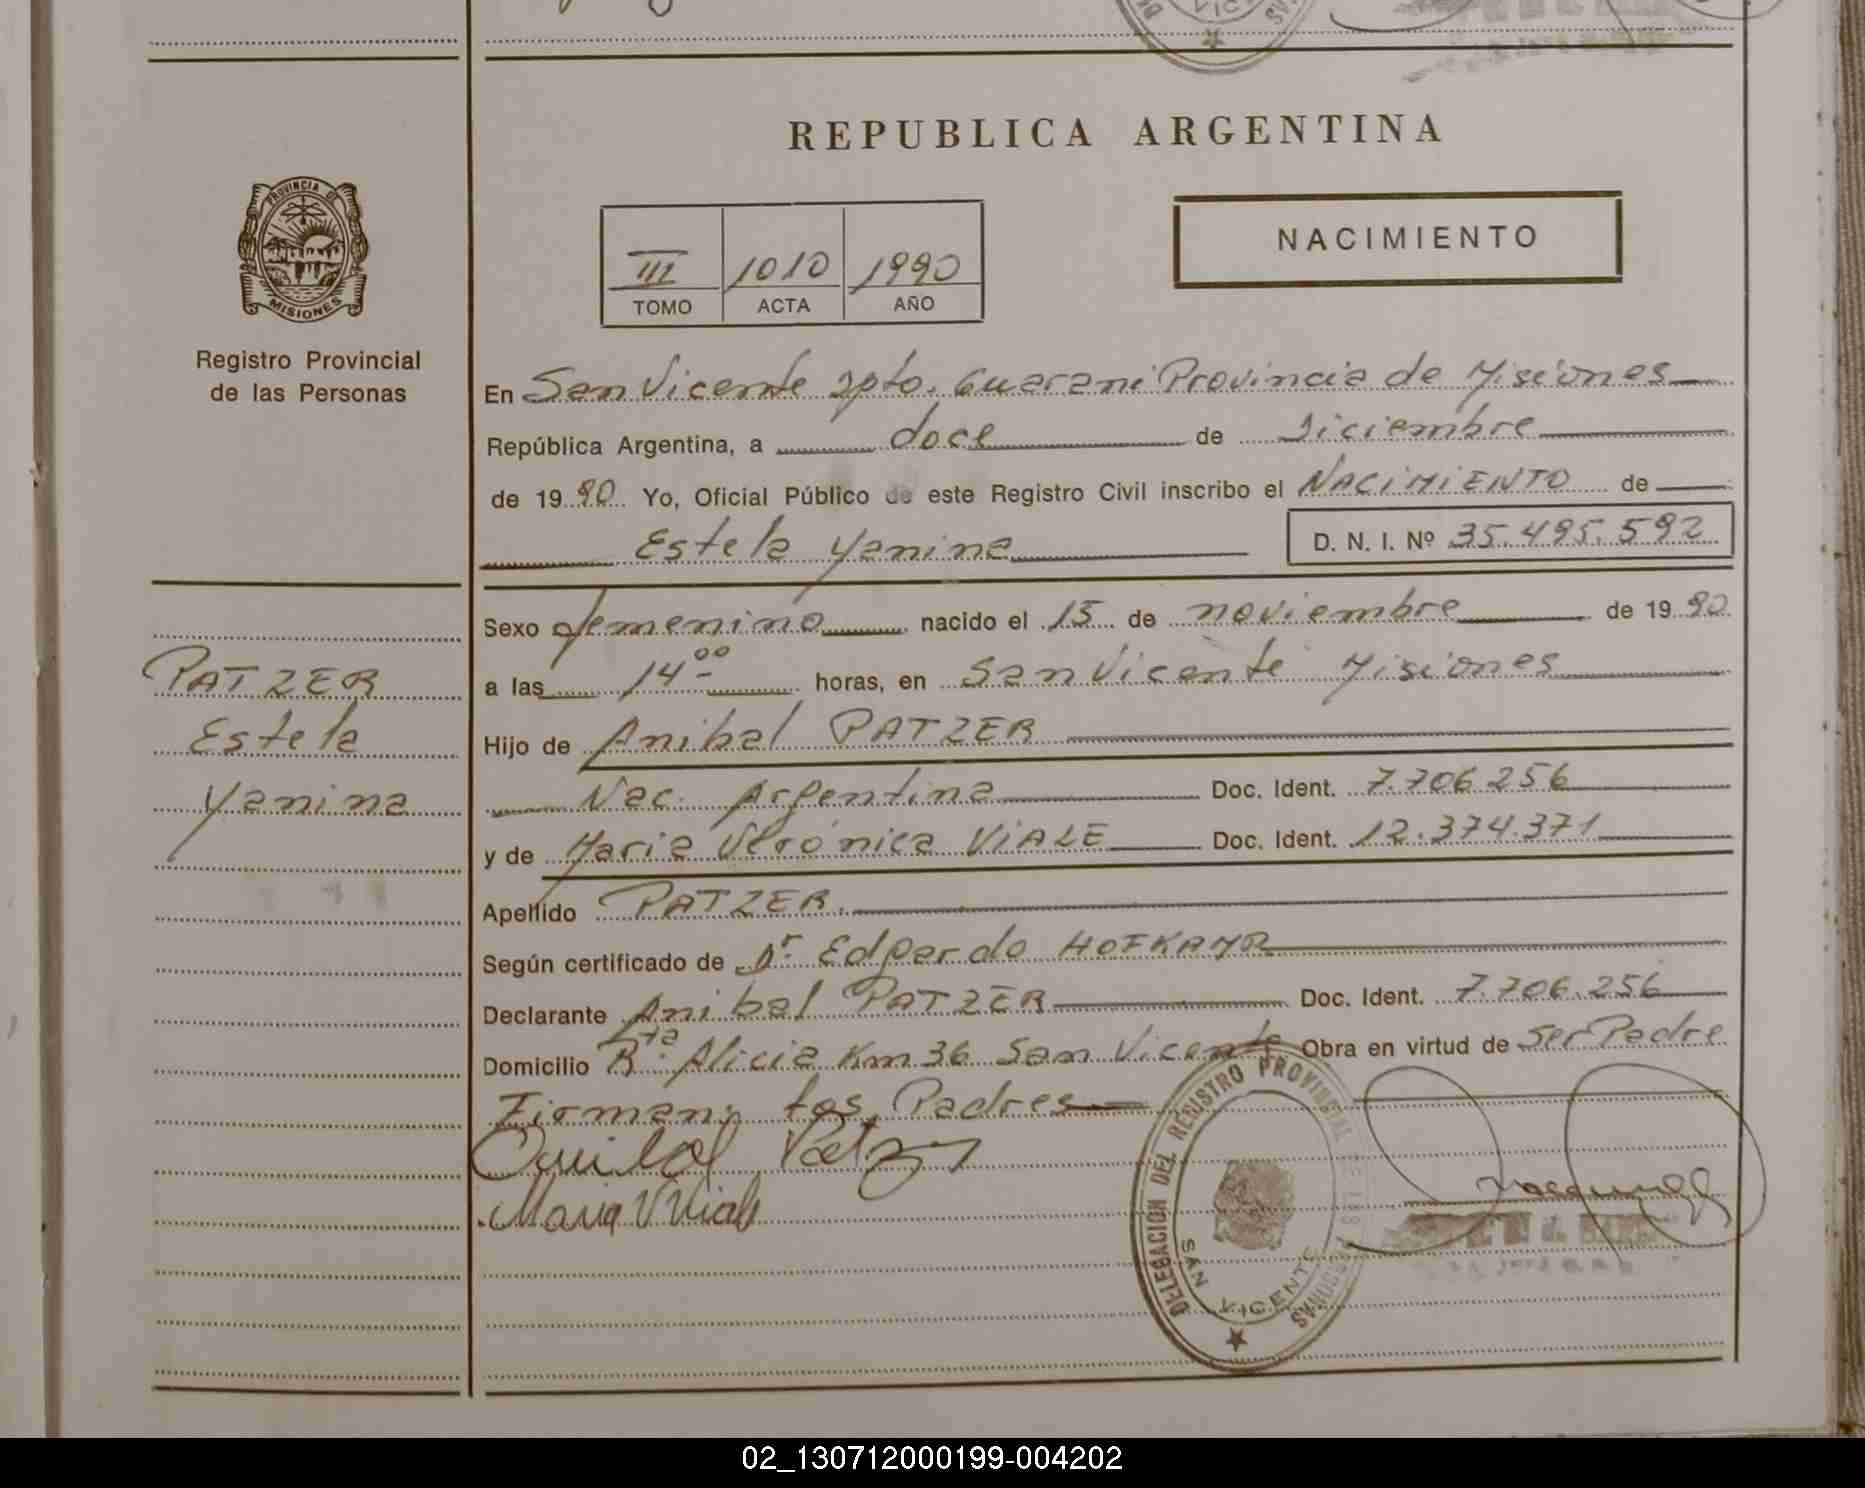 REPUBLICA ARGENTINA
PROVINCIA DE
MISIONES
Registro Provincial
de las Personas
III 1010 1990
TOMO ACTA AÑO
NACIMIENTO
En San Vicente Dpto. Guarani Provincia de Misiones
República Argentina, a doce de Diciembre
de 1990 Yo, Oficial Público de este Registro Civil inscribo el NACIMIENTO de
Estela Yanina D. N. I. Nº 35.495.592
Sexo femenino nacido el 15 de noviembre de 1990
a las 14 00 horas, en San Vicente Misiones
Hijo de Anibal PATZER
Nac. Argentina Doc. Ident. 7.706.256
y de Maria Verónica VIALE Doc. Ident. 12.374.371
Apellido PATZER.
Según certificado de Dr. Edgardo HOFKAMR
Declarante Anibal PATZER Doc. Ident. 7.706.256
Domicilio Rta. Alicia Km 36 San Vicente Obra en virtud de Ser Padre
Firman: los Padres
Anibal Patzer
Maria V Viale
PATZER
Estela
Yanina
DELEGACION DEL REGISTRO PROVINCIAL DE LAS PERSONAS
SAN VICENTE
02_130712000199-004202